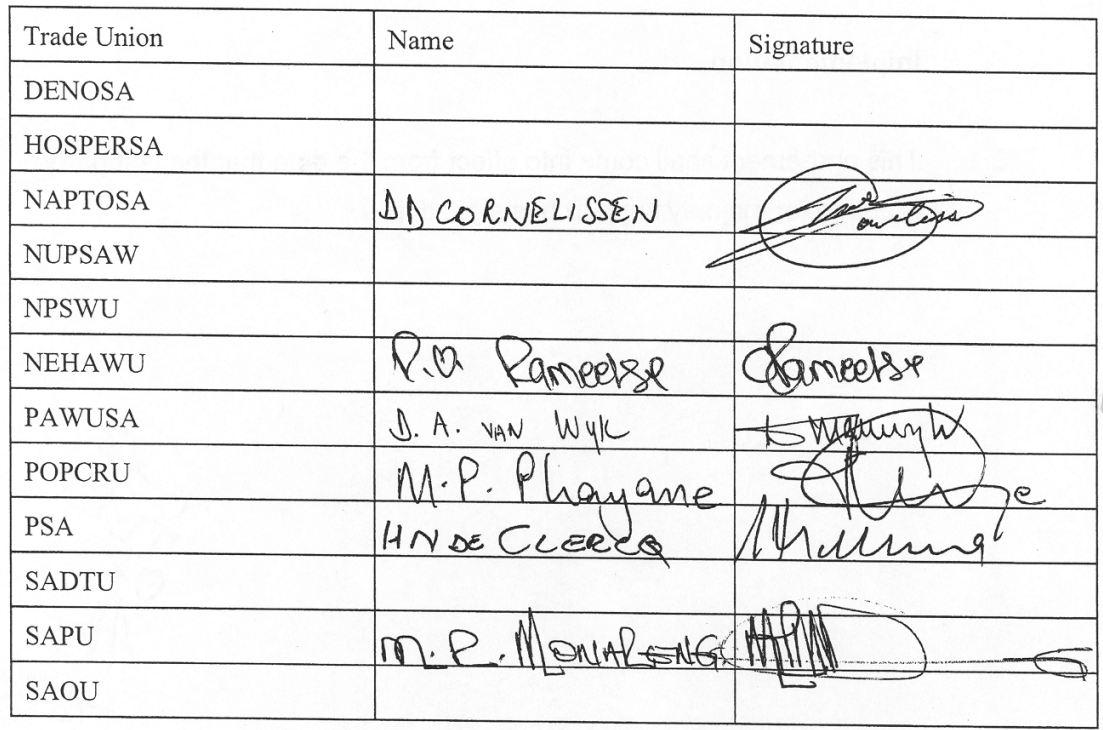 Trade Union Name Signature
DENOSA
HOSPERSA
NAPTOSA DD CORNELISSEN
NUPSAW
NPSWU
NEHAWU Rameetse Rameetse
PAWUSA D. A. VAN WYK
POPCRU M.P. Phayane
PSA HN DE CLERCQ
SADTU
SAPU M.P. MONALENG
SAOU